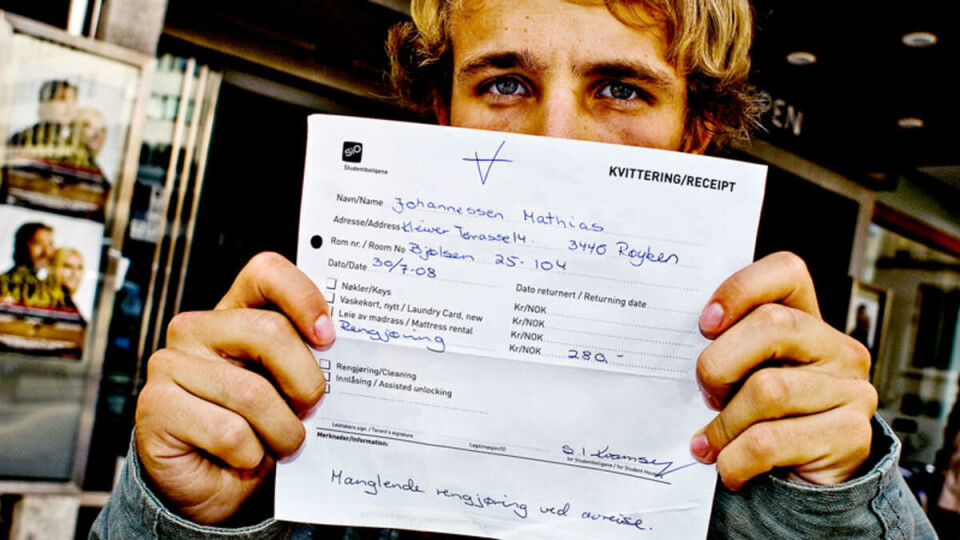 SiO
Studentboligene
KVITTERING/RECEIPT
Navn/Name Johannessen Mathias
Adresse/Address Kléwer Terasse 14. 3440 Røyken
Rom nr. / Room No Bjølsen 25-104
Dato/Date 30/7-08
Dato returnert / Returning date
Nøkler/Keys Kr/NOK
Vaskekort, nytt / Laundry Card, new Kr/NOK
Leie av madrass / Mattress rental Kr/NOK
Rengjøring Kr/NOK 280,-
Rengjøring/Cleaning
Innlåsing / Assisted unlocking
Leietakers sign. / Tenant's signature
Legitimasjon/ID
for Studentboligene / for Student Housing
Merknader/Information:
Manglende rengjøring ved avreise.
PEN